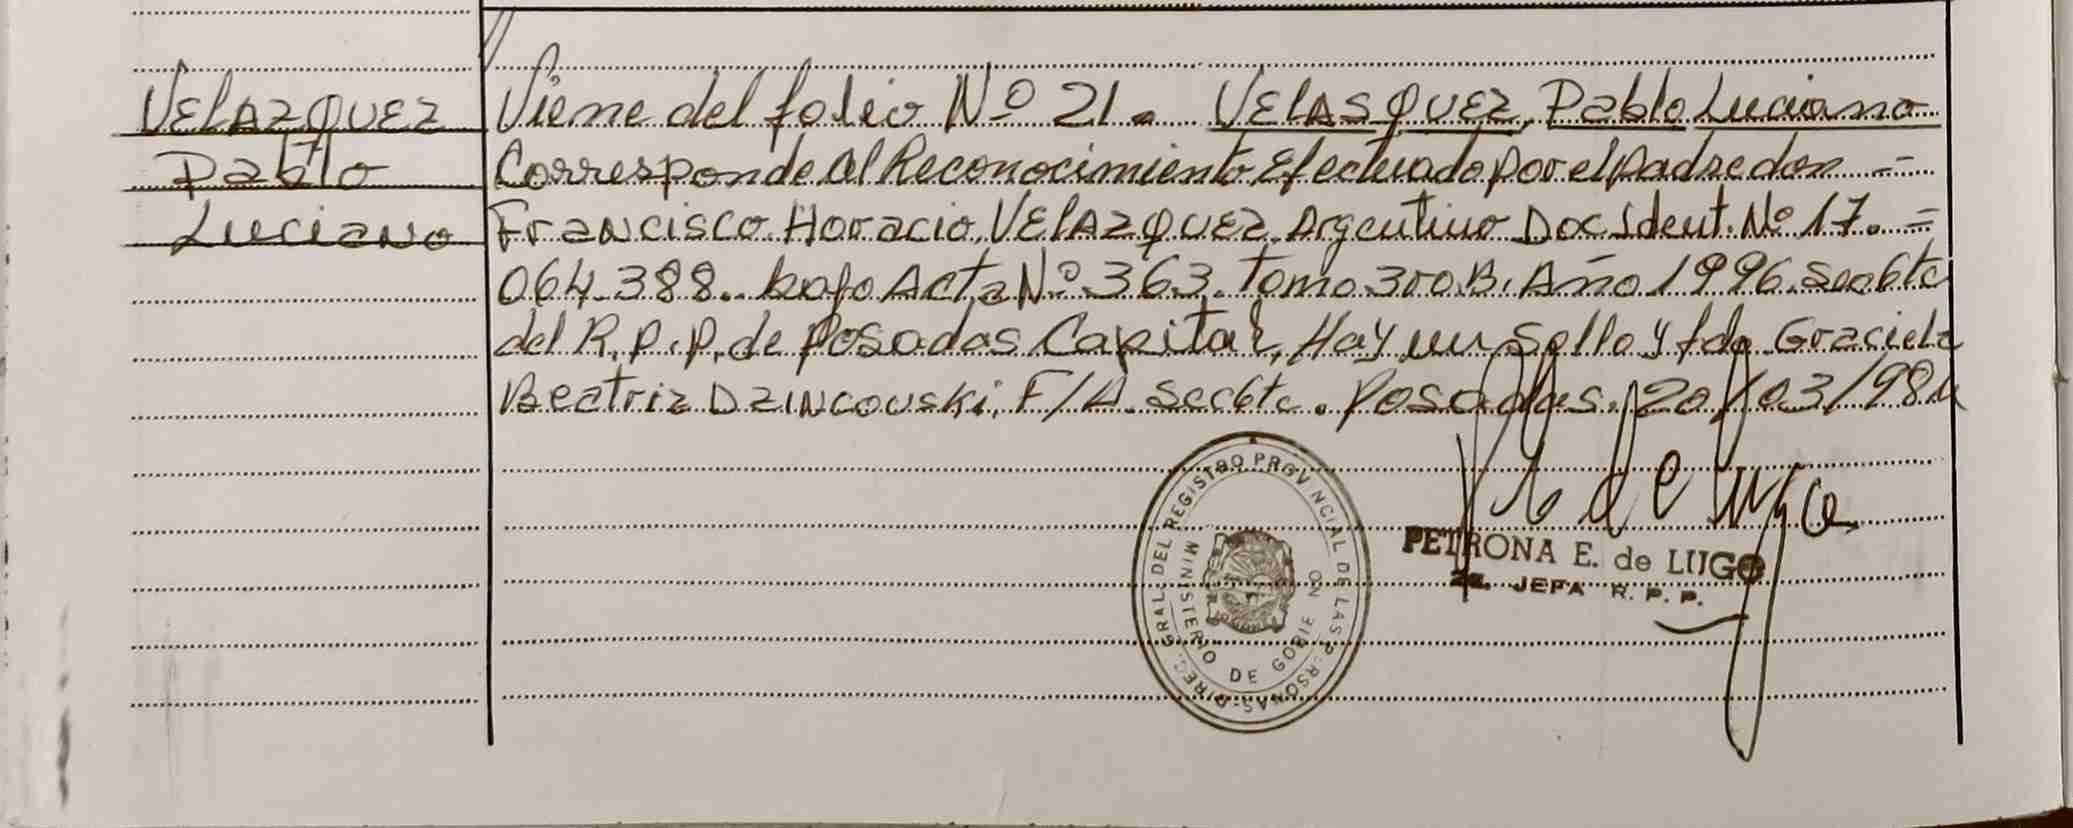 VELAZQUEZ
Pablo
Luciano
Viene del folio Nº 21. VELASQUEZ, Pablo Luciano
Corresponde al Reconocimiento Efectuado por el padre don =
Francisco Horacio VELAZQUEZ Argentino Doc Ident. Nº 17. =
064.388.. bajo Acta Nº 363. Tomo 3ro B. Año 1996. Sec 6ta
del R.P.P. de Posadas Capital, Hay un Sello y fdo Graciela
Beatriz DZINCOUSKI. F/A. Sec 6ta. Posadas. 20/03/98
DIREC. GRAL. DEL REGISTRO PROVINCIAL DE LAS P RSONAS
MINISTERIO DE GOBIE NO
PETRONA E. de LUGO
2a. JEFA R. P. P.